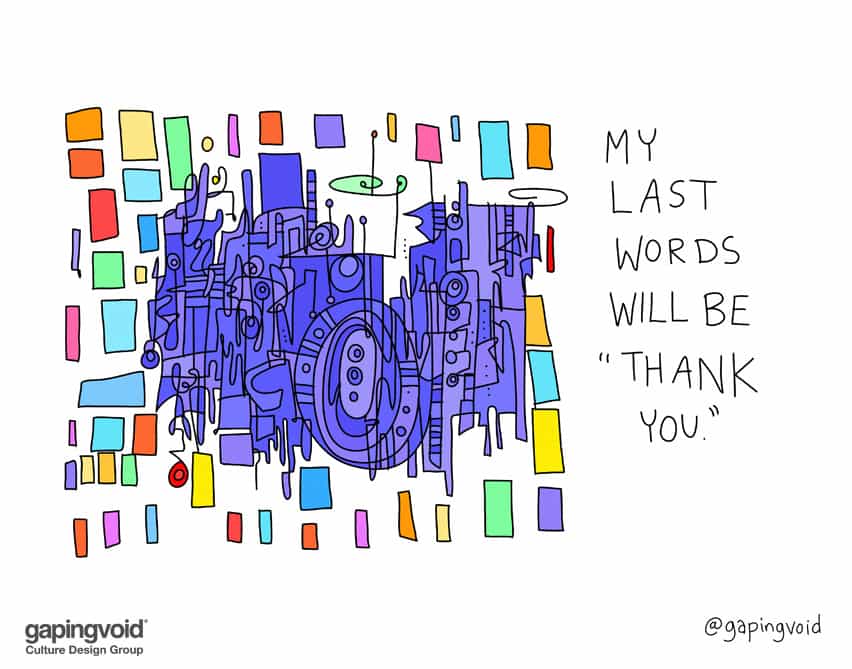 MY
LAST
WORDS
WILL BE
"THANK
YOU."
gapingvoid®
Culture Design Group
@gapingvoid